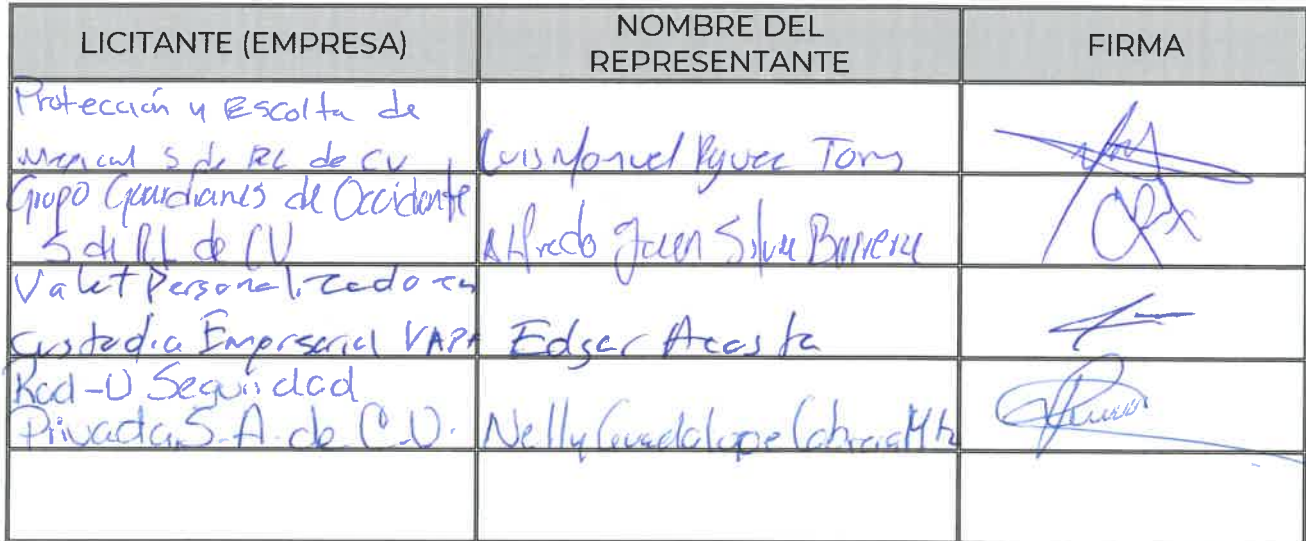 LICITANTE (EMPRESA)
NOMBRE DEL
REPRESENTANTE
FIRMA
Protección y Escolta de
S de RL de CV
Luis Manuel
Grupo Guardianes de Occidente
S de RL de CV
Alfredo Juan Silva Barrera
Valet Personalizado en
Custodia Empresarial VAPE
Edgar Acosta
Red-U Seguridad
Privada S.A. de C.V.
Nelly Guadalupe Cabrera Mtz